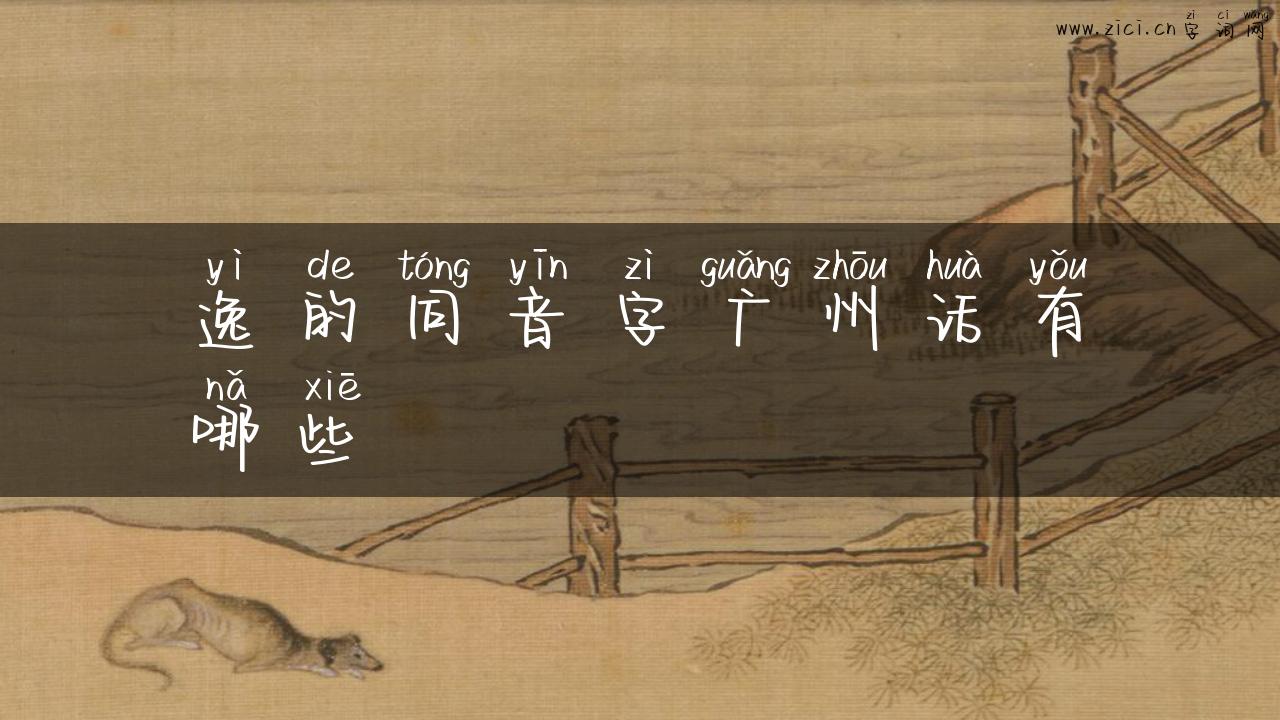 zì cí wǎng
www.zici.cn 字词网
yì de tóng yīn zì guǎng zhōu huà yǒu
逸的同音字广州话有
nǎ xiē
哪些